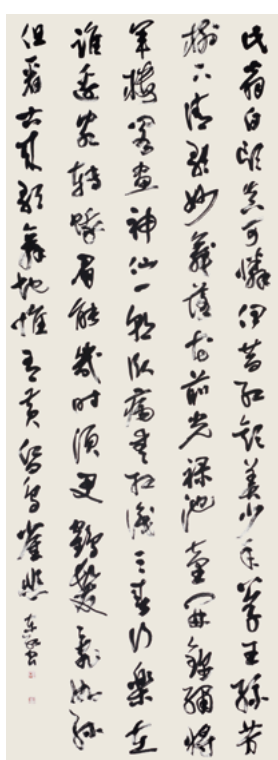 此翁白頭真可憐伊昔紅顏美少年公子王孫芳
樹下清歌妙舞落花前光祿池臺開錦繡將
軍樓閣畫神仙一朝臥病無相識三春行樂在
誰邊宛轉蛾眉能幾時須臾鶴髮亂如絲
但看古來歌舞地惟有黃昏鳥雀悲